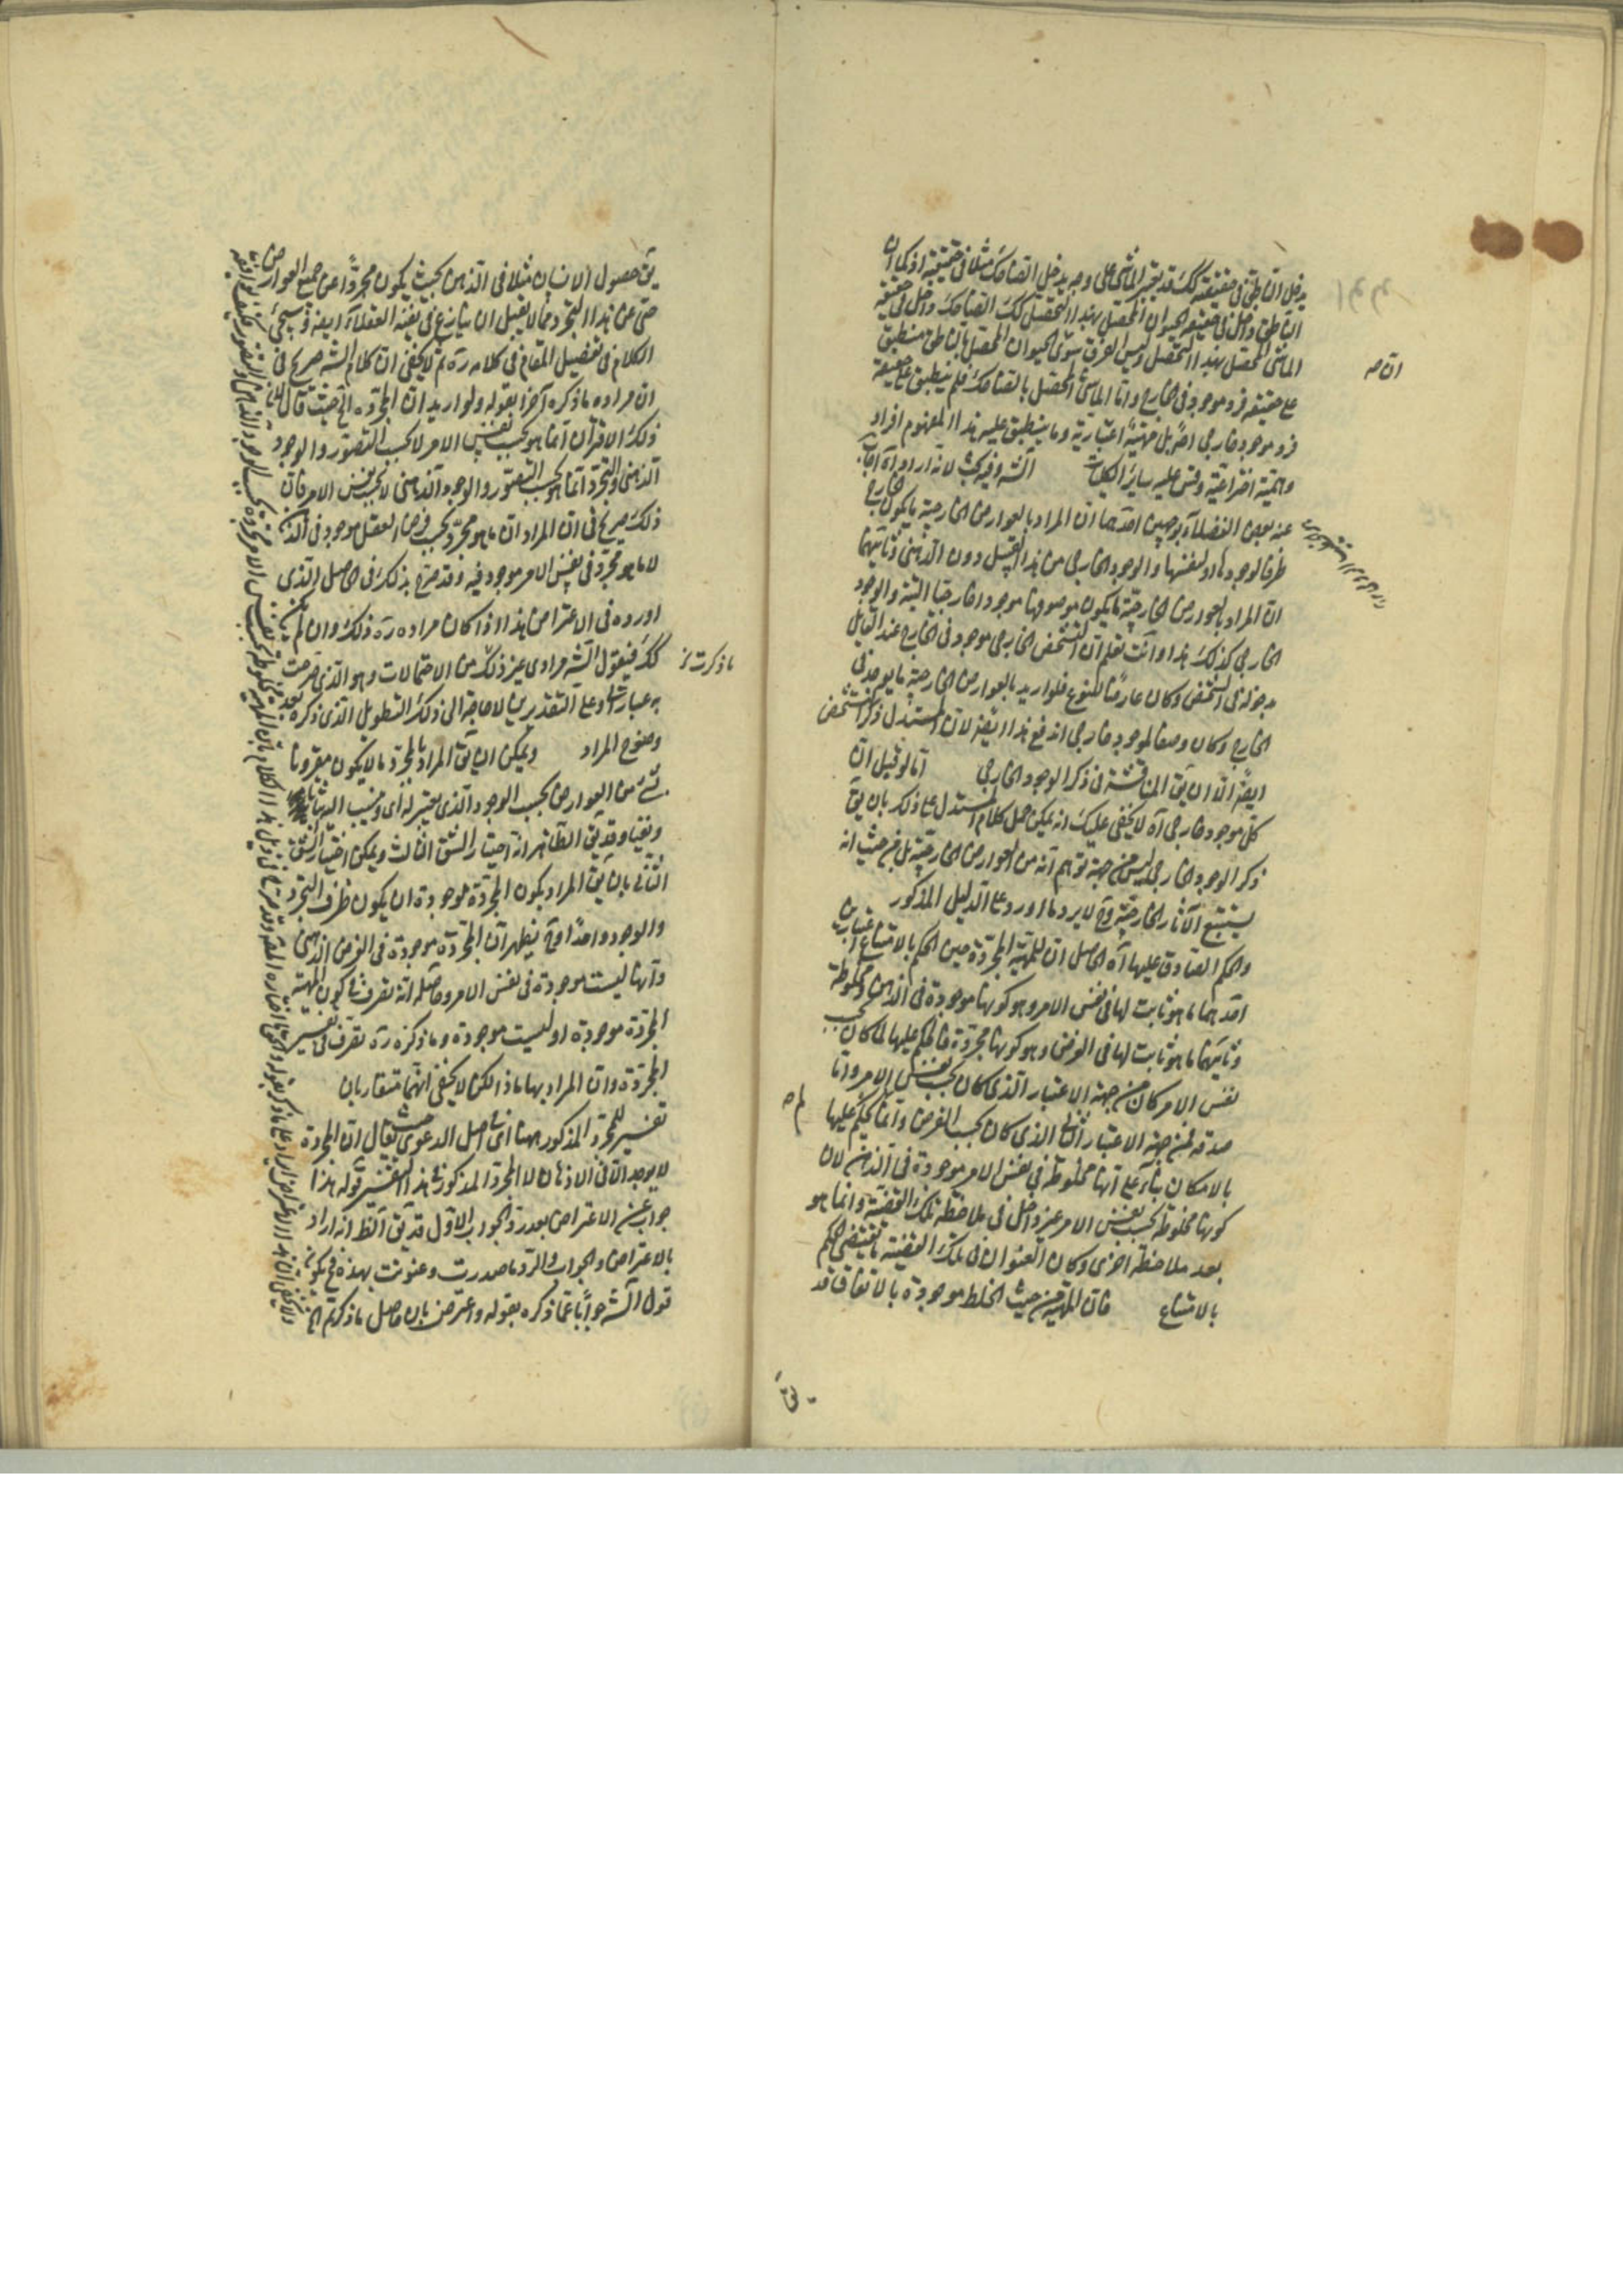 يدخل الناطق في حقيقته كك قد يعتبر الماشي على وجه يدخل الضاحك مثلا في حقيقته اذ كما ان
الناطق داخل في حقيقة الحيوان المحصل بهذا التحصل كك الضاحك داخل في حقيقة
الماشي المحصل بهذا التحصل وليس الفرق سوى الحيوان المحصل بالناطق منطبق
على حقيقة فرد موجود في الخارج واما الماشي المحصل بالضاحك فلم ينطبق على حقيقة
فرد موجود خارجي اصلا بل مهية اعتبارية وما ينطبق عليه هذا المفهوم افراد
وهمية اختراعية وقس عليه ساير الكليات الشه وفيه بحث لانه اراد اه اجاب
عنه بعض الفضلاء بوجهين احدهما ان المراد بالعوارض الخارجية ما يكون الخارج
ظرفا لوجودها او لنفسها والوجود الخارجي من هذا القبيل دون الذهني وثانيهما
ان المراد بالعوارض الخارجية ما يكون موصوفها موجودا خارجيا البتة والوجود
الخارجي كذلك هذا وانت تعلم ان التشخص الخارجي موجود في الخارج عند القايل
بوجود في الشخص وكان عارضا للنوع فلو اريد بالعوارض الخارجية ما يوجد في
الخارج وكان وصفا لموجود خارجي اندفع هذا ايضا لان المستدل ذكر التشخص
ايضا الا ان يق المناقشة في ذكر الوجود الخارجي اما لو قيل ان
كل موجود خارجي اه لا يخفى عليك انه يمكن حمل كلام المستدل على ذلك بان يق
ذكر الوجود الخارجي ليس من جهة توهم انه من العوارض الخارجية بل من حيث انه
يستتبع الآثار الخارجية وح لا يرد ما اورد على الدليل المذكور
والحكم الصادق عليها اه الحاصل ان للمهية المجردة حين الحكم بالامتناع اعتبارين
احدهما ما هو ثابت لها في نفس الامر وهو كونها موجودة في الذهن ومخلوطة
وثانيهما ما هو ثابت لها في الفرض وهو كونها مجردة فالحكم عليها لما كان بحسب
نفس الامر كان من جهة الاعتبار الذي كان بحسب نفس الامر واما
صدقه فمن جهة الاعتبار الثاني الذي كان بحسب الفرض وانما يحكم عليها
بالامكان بناء على انها مخلوطة في نفس الامر موجودة في الذهن لان
كونها مخلوطة بحسب نفس الامر غير داخل في ملاحظة تلك القضية وانما هو
بعد ملاحظة اخرى وكان العنوان في تلك القضية ما يقتضي الحكم
بالامتناع فان المهية من حيث الخلط موجودة بالاتفاق قد
يق
يق حصول الانسان مثلا في الذهن بحيث يكون مجردا عن جميع العوارض
حتى عن هذا التجرد مما لا يقبل ان ينازع في نفيه العقلاء ايضا وسيجئ
الكلام في تفصيل المقام في كلامه ره ثم لا يخفى ان كلام الشه صريح في
ان مراده ما ذكره آخرا بقوله ولو اريد ان المجردة الخ حيث قال بان
ذلك الاقتران انما هو بحسب نفس الامر لا بحسب التصور والوجود
الذهني والتجرد انما هو بحسب التصور والوجود الذهني لا بحسب نفس الامر فان
ذلك صريح في ان المراد ان ما هو مجرد بحسب فرض العقل موجود في الذهن
لا ما هو مجرد في نفس الامر موجود فيه وقد صرح بذلك في حاصل الذي
اورده في الاعتراض هذا اذا كان مراده ره ذلك وان لم يكن
كك فنقول الشه مرادي غير ذلك من الاحتمالات وهو الذي صرحت
به عبارتنا وعلى التقديرين لا حاجة الى ذلك التطويل الذي ذكره بعد
وضوح المراد ويمكن ان يق المراد بالمجرد ما لا يكون مقرونا
بشئ من العوارض بحسب الوجود الذي يعتبر له اي وينسب اليها اثباتا
ونفيا وقد يق الظاهر انه اختيار الشق الثالث ويمكن اختيار الشق
الثاني بان يق المراد بكون المجردة موجودة ان يكون ظرف التجرد
والوجود واحدا وح يظهر ان المجردة موجودة في الفرض الذهني
وانها ليست موجودة في نفس الامر وحاصله انه تصرف في كون المهية
المجردة موجودة او ليست موجودة وما ذكره ره تصرف في تفسير
المجردة وان المراد بها ماذا لكن لا يخفى انهما متقاربان
تفسير للمجرد المذكور ههنا اي في اصل الدعوى حيث يقال ان المجردة
لا يوجد الا في الاذهان لا المجرد المذكور في هذا التفسير قوله هذا
جواب عن الاعتراض بعد رد الجواب الاول قد يق الظ انه اراد
بالاعتراض والجواب والرد ما صدرت وعنونت بهذه فح يكون
قول الشه جوابا عما ذكره بقوله واعترض بان حاصل ما ذكرتم الخ